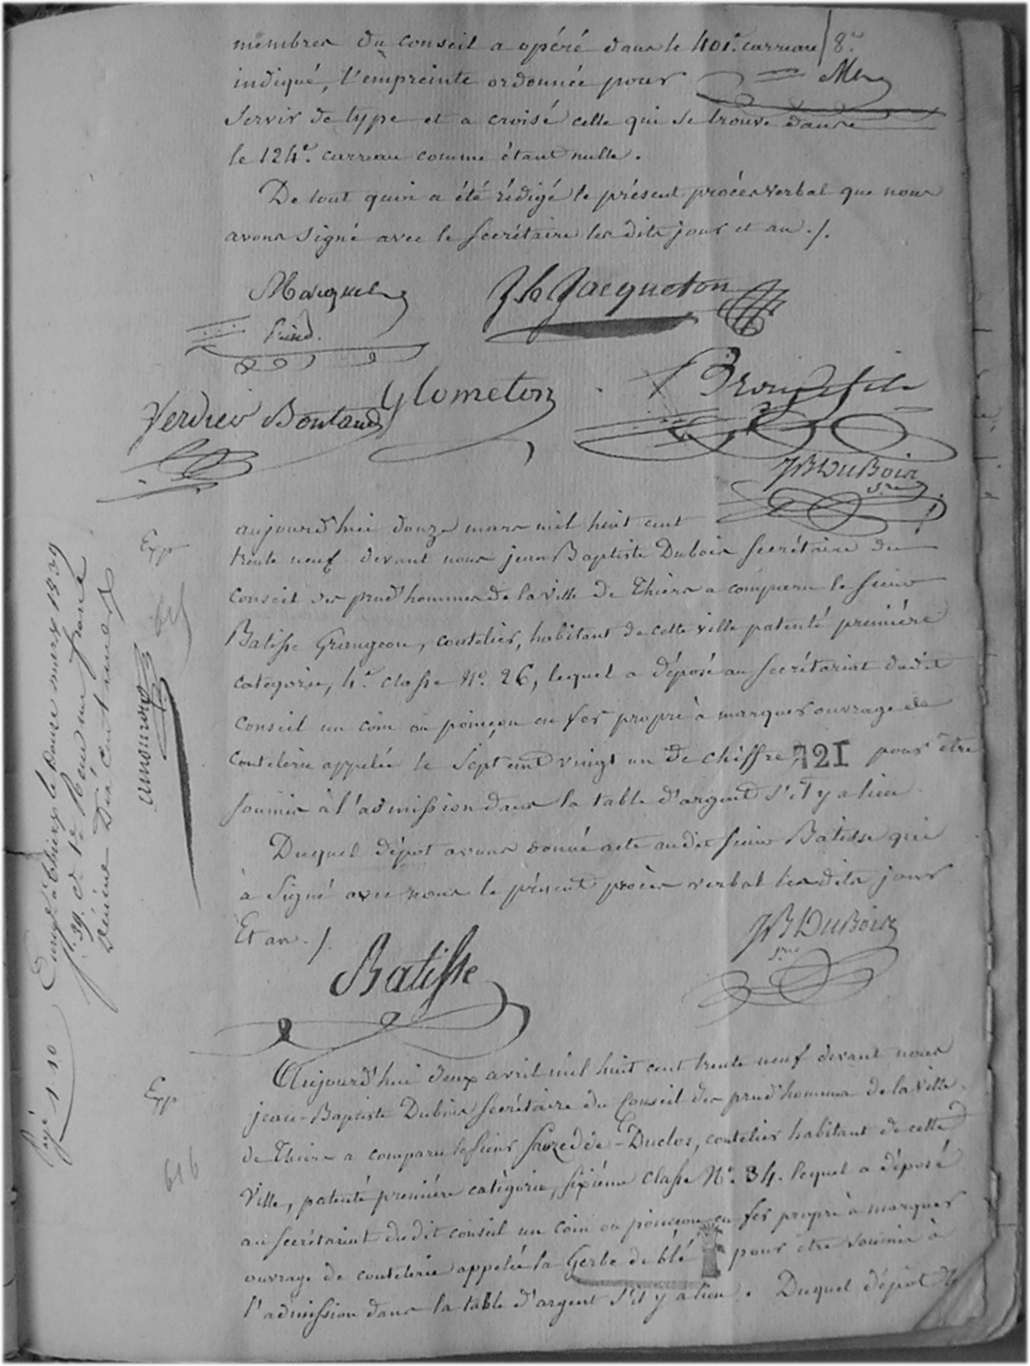 membres du conseil a opéré dans le 401e. carreau / 8e
indiqué, l'empreinte ordonnée pour
servir de type et a croisé celle qui se trouve dans
le 124e. carreau comme étant nulle.
De tout quoi a été rédigé le présent procès verbal que nous
avons signé avec le secrétaire les dits jour et an ./.
Jh Jacqueton
Prud.
Verdier Boutaud Glometon
JB DuBois
Sre
aujourd'hui douze mars mil huit cent
trente neuf devant nous jean Baptiste Dubois secrétaire du
Conseil des prud'hommes de la ville de Thiers a comparu le sieur
Batisse Grangeon, coutelier, habitant de cette ville patenté première
catégorie, 4e. classe No. 26, lequel a déposé au secrétariat dudit
Conseil un coin ou poinçon en fer propre à marquer ouvrage de
coutelerie appelée le Sept cent vingt un de chiffre 721 pour être
soumis à l'admission dans la table d'argent s'il y a lieu
Duquel dépôt avons donné acte audit sieur Batisse qui
à signé avec nous le présent procès verbal les dits jour
Et an ./.
JB DuBois
Sre
Batisse
Exp
Enregistré à thiers le douze mars 1839
Exp
616
Payé 1 10
Aujourd'hui deux avril mil huit cent trente neuf devant nous
jean-Baptiste Dubois secrétaire du Conseil des prud'hommes de la ville
de Thiers a comparu le sieur Sauzedde-Duclos, coutelier habitant de cette
ville, patenté première catégorie, sixième classe No. 34. lequel a déposé
au secrétariat dudit conseil un coin ou poinçon en fer propre à marquer
ouvrage de coutelerie appelée la Gerbe de blé pour être soumis à
l'admission dans la table d'argent s'il y a lieu. Duquel dépôt